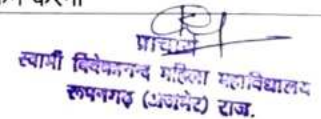 करना
प्राचार्य
स्वामी विवेकानन्द महिला महाविधालय
रूपनगढ़ (अजमेर) राज.